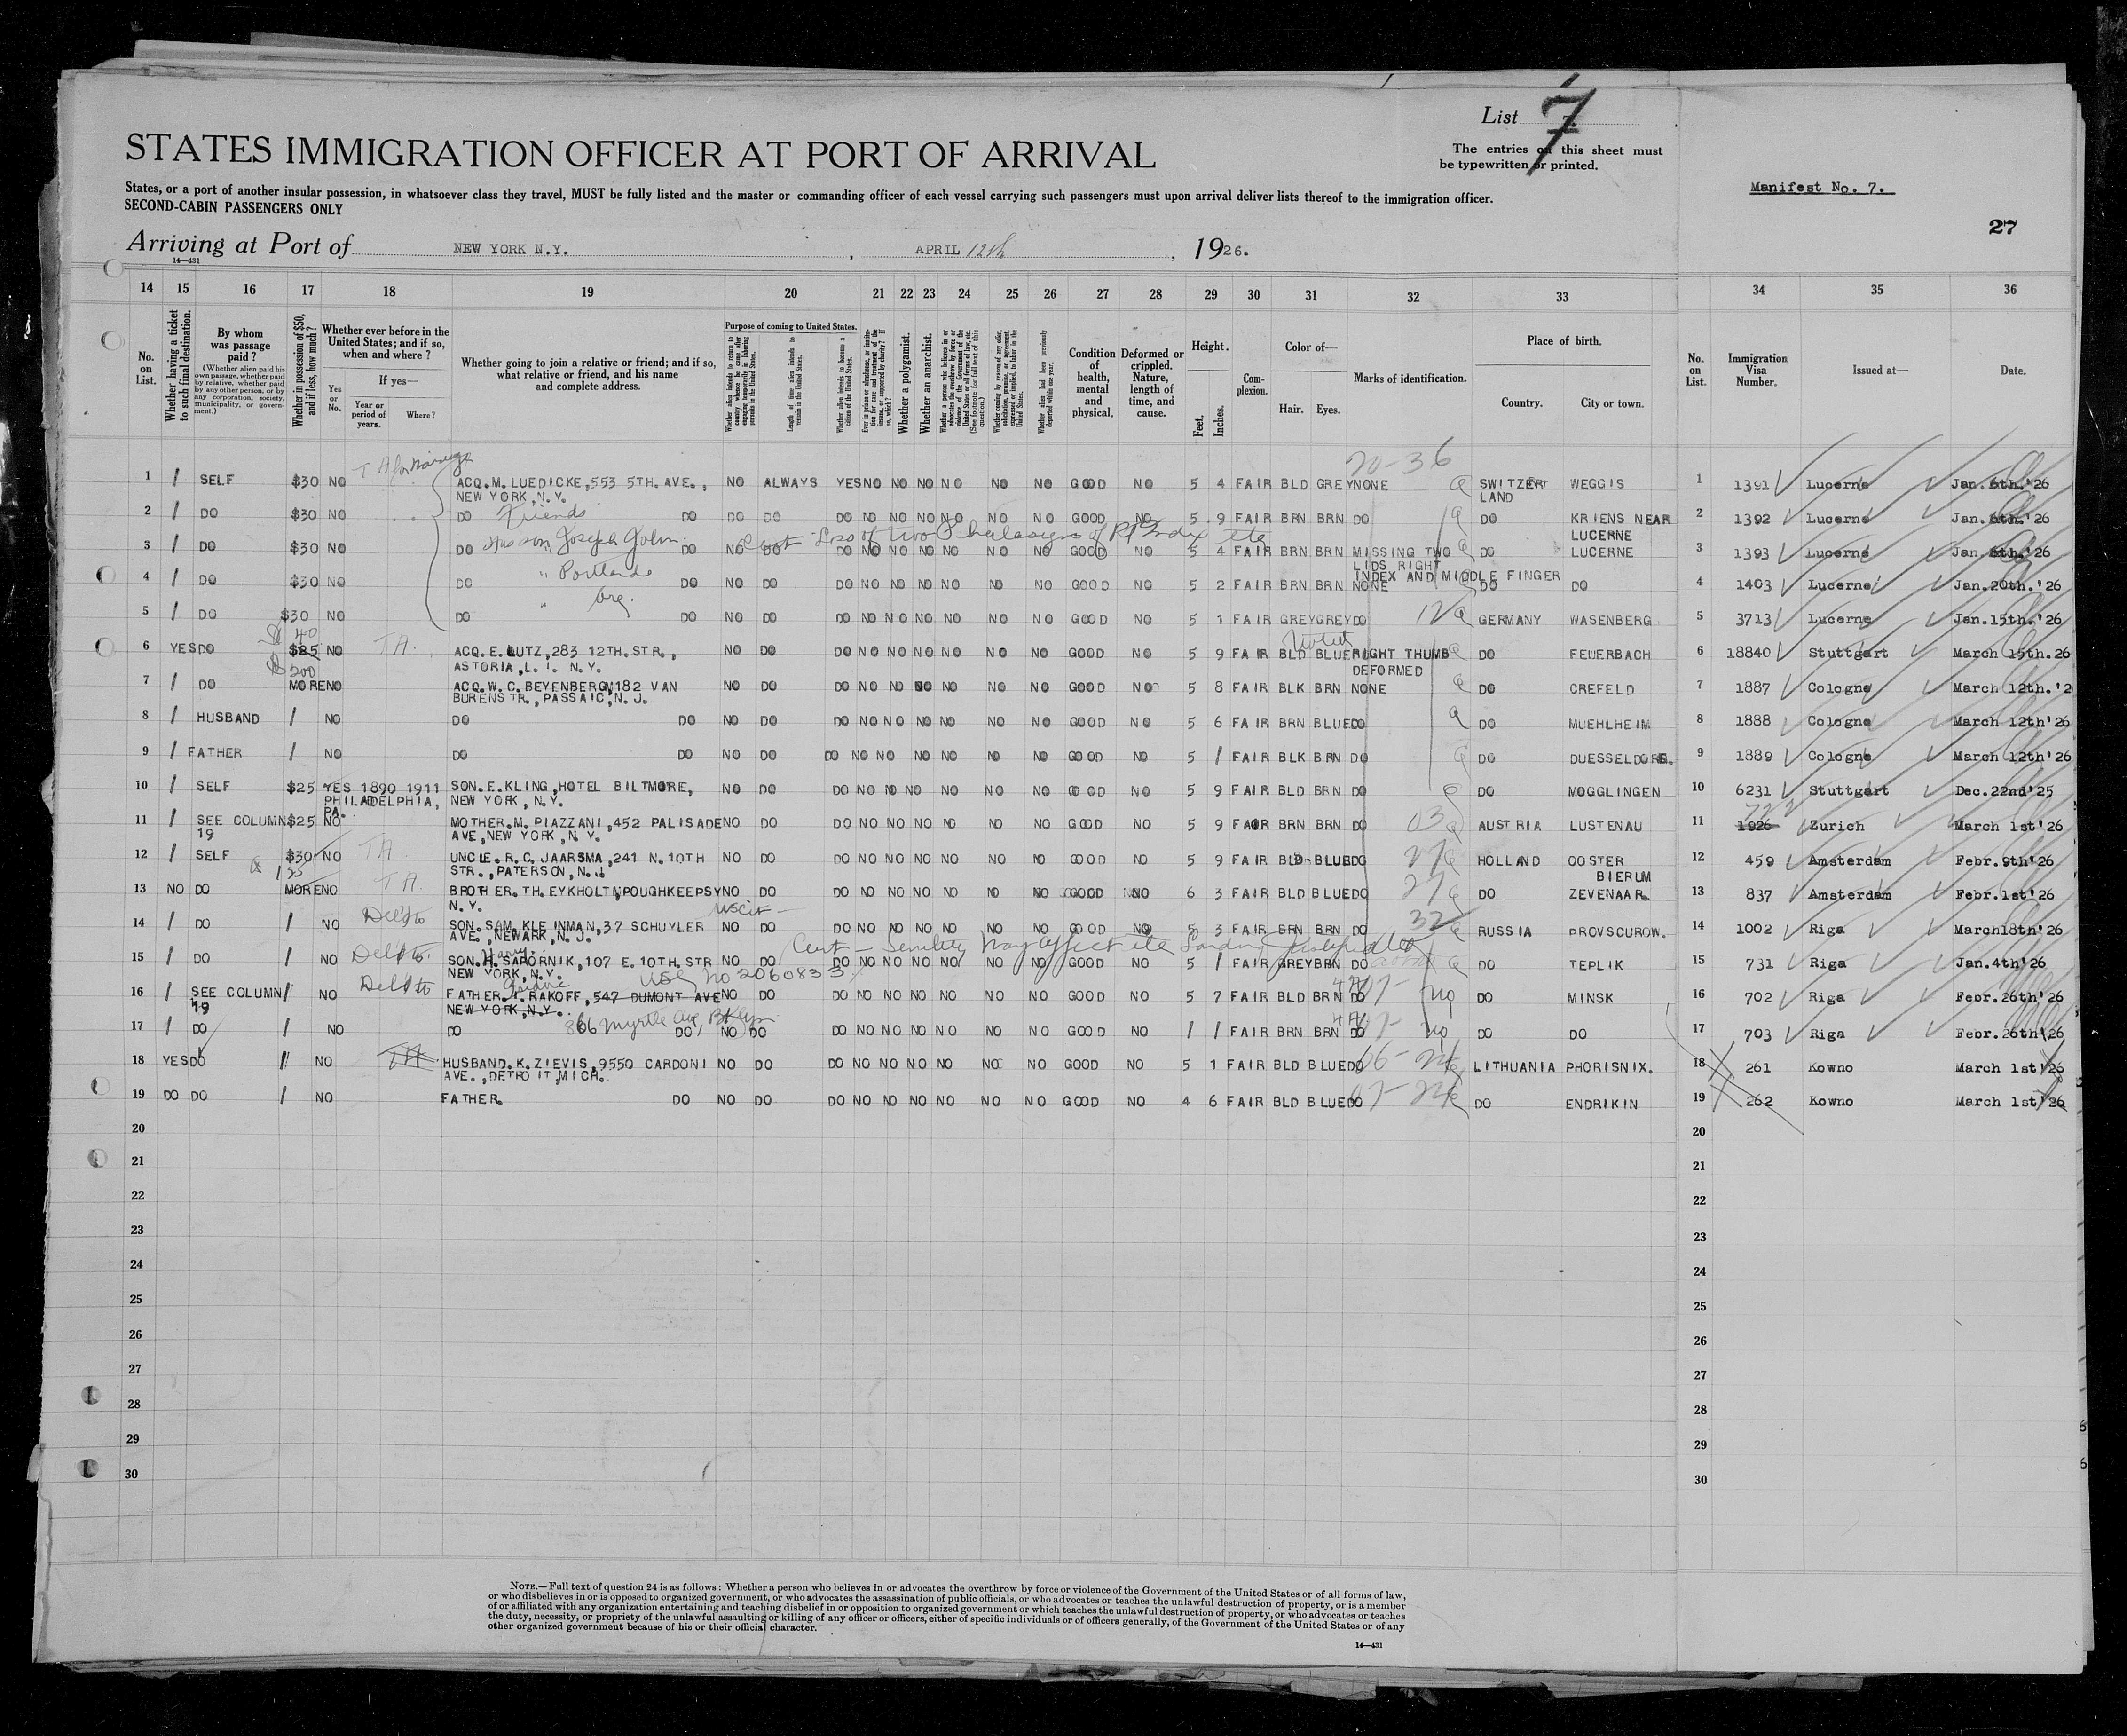 List 7
STATES IMMIGRATION OFFICER AT PORT OF ARRIVAL
The entries on this sheet must
be typewritten or printed.
Manifest No. 7.
States, or a port of another insular possession, in whatsoever class they travel, MUST be fully listed and the master or commanding officer of each vessel carrying such passengers must upon arrival deliver lists thereof to the immigration officer.
SECOND-CABIN PASSENGERS ONLY
27
Arriving at Port of NEW YORK N.Y. , APRIL 12th , 1926.
14—431
14 15 16 17 18 19 20 21 22 23 24 25 26 27 28 29 30 31 32 33 34 35 36
No. on List.
Whether having a ticket to such final destination.
By whom was passage paid?
(Whether alien paid his own passage, whether paid by relative, whether paid by any other person, or by any corporation, society, municipality, or government.)
Whether in possession of $50, and if less, how much?
Whether ever before in the United States; and if so, when and where?
Yes or No.
If yes—
Year or period of years.
Where?
Whether going to join a relative or friend; and if so, what relative or friend, and his name and complete address.
Purpose of coming to United States.
Whether alien intends to return to country whence he came after engaging temporarily in laboring pursuits in the United States.
Length of time alien intends to remain in the United States.
Whether alien intends to become a citizen of the United States.
Whether a polygamist.
Whether an anarchist.
Condition of health, mental and physical.
Deformed or crippled. Nature, length of time, and cause.
Height.
Feet. Inches.
Complexion.
Color of—
Hair. Eyes.
Marks of identification.
Place of birth.
Country. City or town.
No. on List.
Immigration Visa Number.
Issued at—
Date.
20-36
1 / SELF $30 NO ACQ. M. LUEDICKE, 553 5TH. AVE., NO ALWAYS YES NO NO NO NO NO NO GOOD NO 5 4 FAIR BLD GREY NONE SWITZERLAND WEGGIS 1 1391 Lucerne Jan. 6th.'26
NEW YORK, N.Y.
2 / DO $30 NO DO Friends DO DO DO DO NO NO NO NO NO NO GOOD NO 5 9 FAIR BRN BRN DO DO KRIENS NEAR LUCERNE 2 1392 Lucerne Jan. 6th.'26
Cert Loss of two
3 / DO $30 NO DO Has son Joseph DO NO DO DO NO NO NO NO NO NO GOOD NO 5 4 FAIR BRN BRN MISSING TWO LIDS RIGHT INDEX AND MIDDLE FINGER DO LUCERNE 3 1393 Lucerne Jan. 6th.'26
4 / DO $30 NO DO " Portland DO NO DO DO NO NO NO NO NO NO GOOD NO 5 2 FAIR BRN BRN NONE DO DO 4 1403 Lucerne Jan.20th.'26
5 / DO $30 NO DO " Org. DO NO DO DO NO NO NO NO NO NO GOOD NO 5 1 FAIR GREY GREY DO 12 GERMANY WASENBERG 5 3713 Lucerne Jan.15th.'26
40
6 YES DO $25 NO T A. ACQ. E. LUTZ, 283 12TH. STR., NO DO DO NO NO NO NO NO NO GOOD NO 5 9 FAIR BLD BLUE RIGHT THUMB DEFORMED DO FEUERBACH 6 18840 Stuttgart March 15th.26
ASTORIA, L. I. N. Y.
200
7 / DO MORE NO ACQ. W. C. BEYENBERG, 182 VAN NO DO DO NO NO NO NO NO NO GOOD NO 5 8 FAIR BLK BRN NONE DO CREFELD 7 1887 Cologne March 12th.'2
BURENSTR., PASSAIC, N.J.
8 / HUSBAND / NO DO DO NO DO DO NO NO NO NO NO NO GOOD NO 5 6 FAIR BRN BLUE DO DO MUEHLHEIM 8 1888 Cologne March 12th'26
9 / FATHER / NO DO DO NO DO DO NO NO NO NO NO NO GOOD NO 5 / FAIR BLK BRN DO DO DUESSELDORF. 9 1889 Cologne March 12th'26
10 / SELF $25 YES 1890 1911 SON. E. KLING, HOTEL BILTMORE, NO DO DO NO NO NO NO NO NO GOOD NO 5 9 FAIR BLD BRN DO DO MOGGLINGEN 10 6231 Stuttgart Dec.22nd'25
PHILADELPHIA, PA. NEW YORK, N.Y.
11 / SEE COLUMN 19 $25 NO MOTHER. M. PIAZZANI, 452 PALISADE NO DO DO NO NO NO NO NO NO GOOD NO 5 9 FAIR BRN BRN DO 03 AUSTRIA LUSTENAU 11 1926 722 Zurich March 1st'26
AVE, NEW YORK, N.Y.
12 / SELF $30 NO T A. UNCLE. R. C. JAARSMA, 241 N. 10TH NO DO DO NO NO NO NO NO NO GOOD NO 5 9 FAIR BLD BLUE DO 27 HOLLAND OOSTER BIERUM 12 459 Amsterdam Febr.9th'26
STR., PATERSON, N.J.
13 NO DO MORE NO T A. BROTHER. TH. EYKHOLT, POUGHKEEPSY NO DO DO NO NO NO NO NO NO GOOD NO 6 3 FAIR BLD BLUE DO 27 DO ZEVENAAR. 13 837 Amsterdam Febr.1st'26
N.Y. US cit—
14 / DO / NO SON. SAM. KLEINMAN, 37 SCHUYLER NO DO DO NO NO NO NO NO NO GOOD NO 5 3 FAIR BRN BRN DO 32 RUSSIA PROVSCUROW. 14 1002 Riga March18th'26
AVE., NEWARK, N.J.
Cert — Senility may affect
15 / DO / NO SON. H. SAPORNIK, 107 E. 10TH. STR NO DO DO NO NO NO NO NO NO GOOD NO 5 / FAIR GREY BRN DO DO TEPLIK 15 731 Riga Jan.4th'26
Harry
NEW YORK, N.Y. USC No 2060833
16 / SEE COLUMN 19 / NO FATHER. I. RAKOFF, 547 DUMONT AVE NO DO DO NO NO NO NO NO NO GOOD NO 5 7 FAIR BLD BRN DO DO MINSK 16 702 Riga Febr.26th'26
Isidore
NEW YORK, N.Y. 866 Myrtle Ave, Bklyn
17 / DO / NO DO DO NO DO DO NO NO NO NO NO NO GOOD NO / / FAIR BRN BRN DO DO DO 17 703 Riga Febr.26th'26
18 YES DO / NO TA HUSBAND. K. ZIEVIS, 9550 CARDONI NO DO DO NO NO NO NO NO NO GOOD NO 5 1 FAIR BLD BLUE DO LITHUANIA PHORISNIX. 18 261 Kowno March 1st'26
AVE., DETROIT, MICH.
19 DO DO / NO FATHER. DO NO DO DO NO NO NO NO NO NO GOOD NO 4 6 FAIR BLD BLUE DO DO ENDRIKIN 19 262 Kowno March 1st'26
20 20
21 21
22 22
23 23
24 24
25 25
26 26
27 27
28 28
29 29
30 30
NOTE.—Full text of question 24 is as follows: Whether a person who believes in or advocates the overthrow by force or violence of the Government of the United States or of all forms of law,
or who disbelieves in or is opposed to organized government, or who advocates the assassination of public officials, or who advocates or teaches the unlawful destruction of property, or is a member
of or affiliated with any organization entertaining and teaching disbelief in or opposition to organized government or which teaches the unlawful destruction of property, or who advocates or teaches
the duty, necessity, or propriety of the unlawful assaulting or killing of any officer or officers, either of specific individuals or of officers generally, of the Government of the United States or of any
other organized government because of his or their official character.
14—431